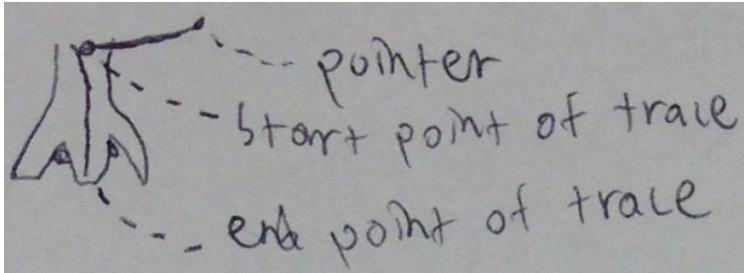 pointer
start point of trace
end point of trace